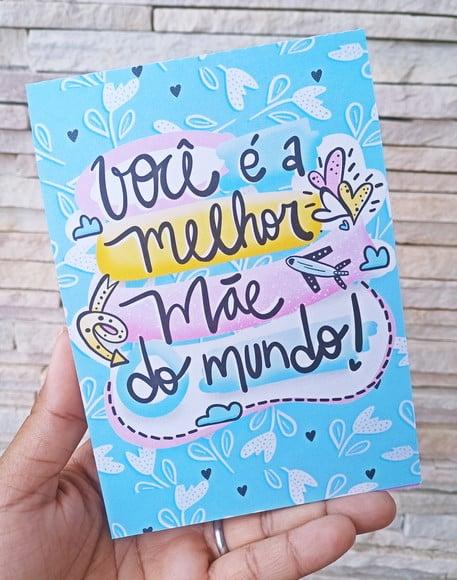 Você é a
melhor
mãe
do mundo!